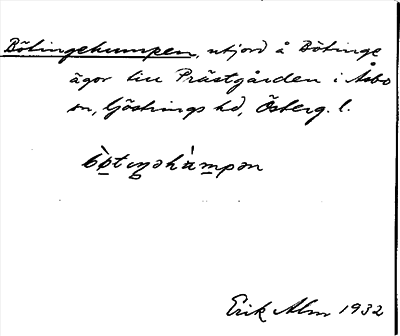 Bötingekumpen, utjord å Bötinge
ägor till Prästgården i Åsbo
sn, Göstrings hd, Österg. l.
bø̀tıŋəkàmpən
Erik Alm 1932